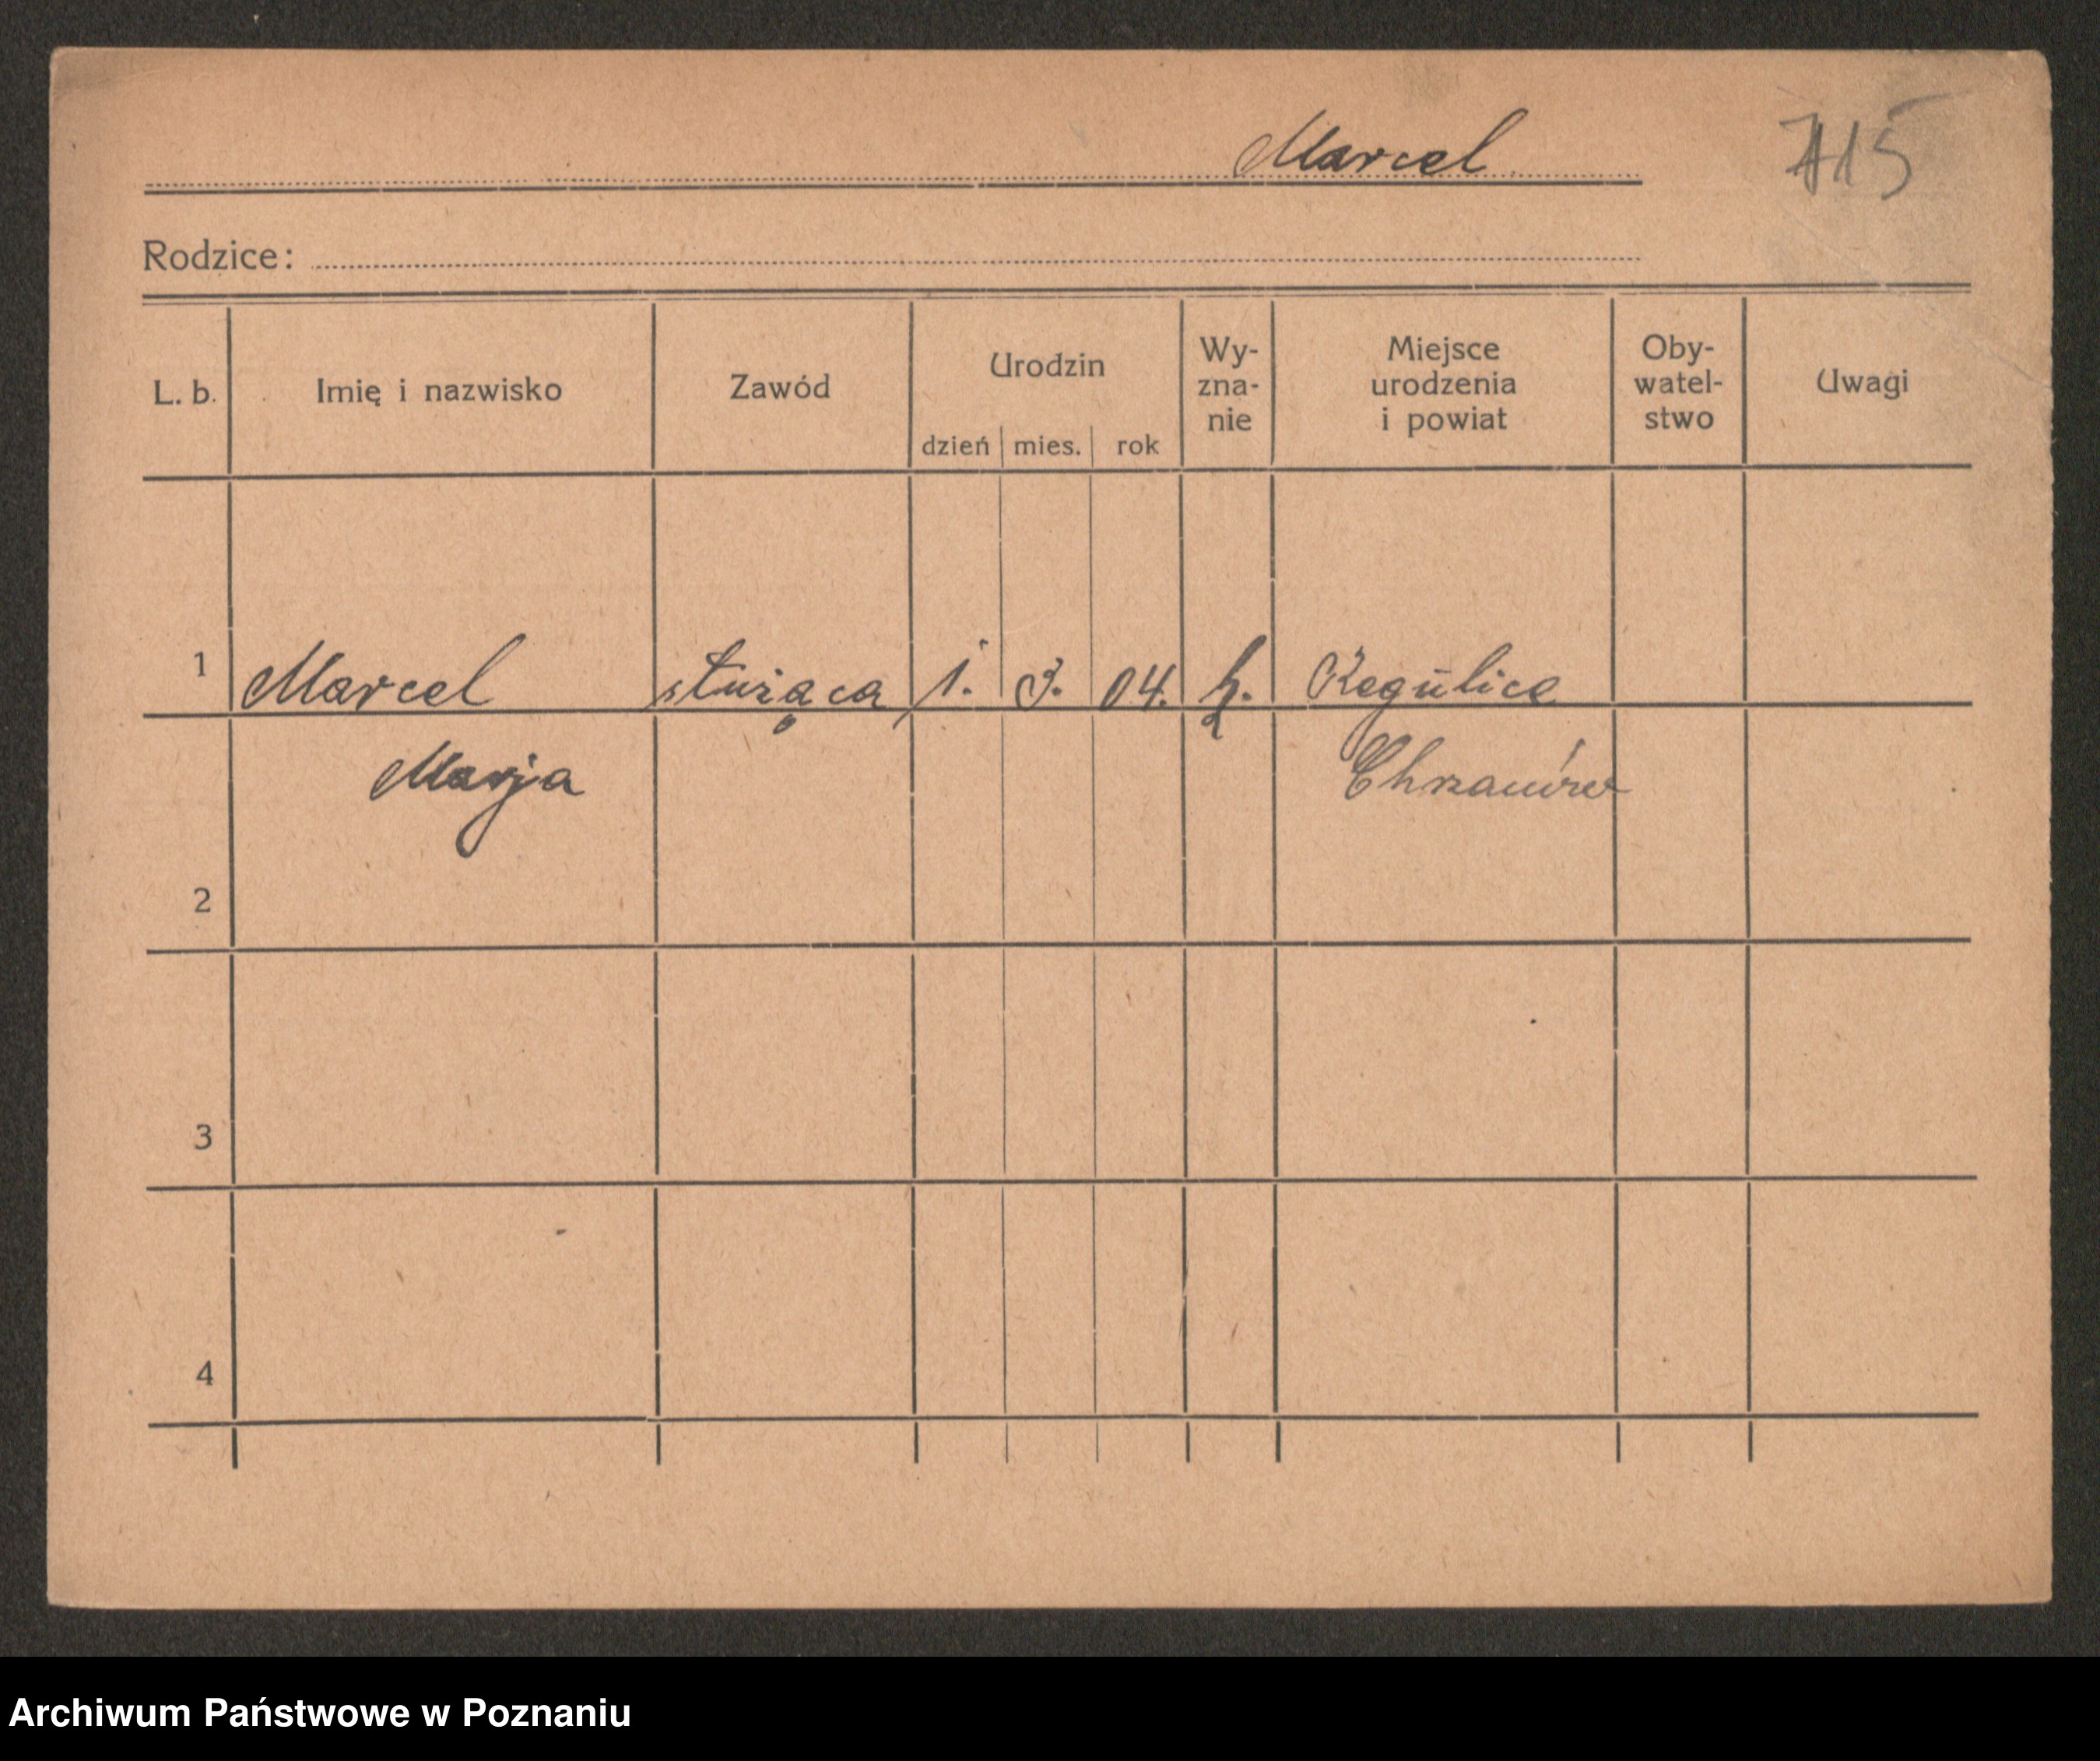 Marcel
715
Rodzice:
L. b. Imię i nazwisko Zawód Urodzin dzień mies. rok Wy-zna-nie Miejsce urodzenia i powiat Oby-watel-stwo Uwagi
1 Marcel służąca 1. 3. 04. Regulice
Marja Chrzanów
2
3
4
Archiwum Państwowe w Poznaniu